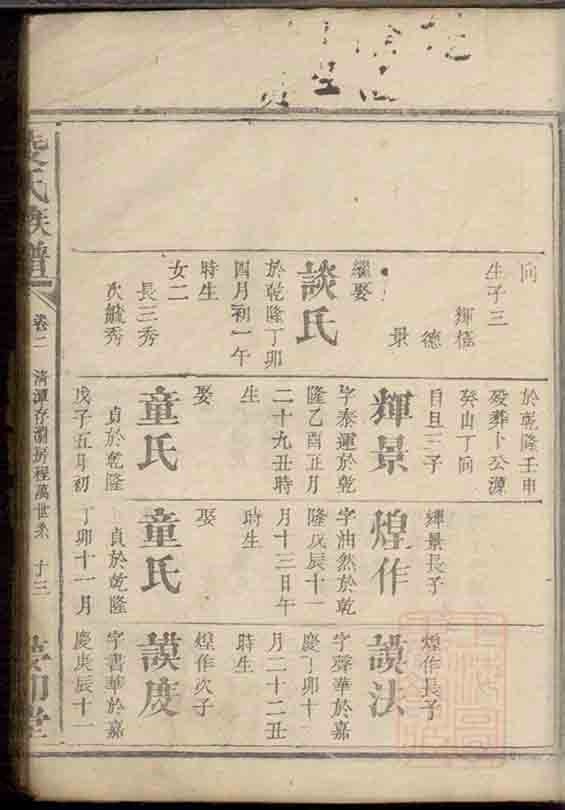 向
生子三
輝楁
德
景
繼娶
談氏
於乾隆丁卯
四月初一午
時生
女二
長三秀
次毓秀
於乾隆壬申
歿葬卜公源
癸山丁向
自旦三子
輝景
字泰運於乾
隆乙酉正月
二十九丑時
生
娶
童氏
貞於乾隆
戊子五月初
輝景長子
煌作
字油然於乾
隆戊辰十一
月十三日午
時生
娶
童氏
貞於乾隆
丁卯十一月
煌作長子
謨法
字聲華於嘉
慶丁卯十
月二十二丑
時生
煌作次子
謨度
字書華於嘉
慶庚辰十一
氏族譜
卷二
清潭存澗房程萬世系
十三